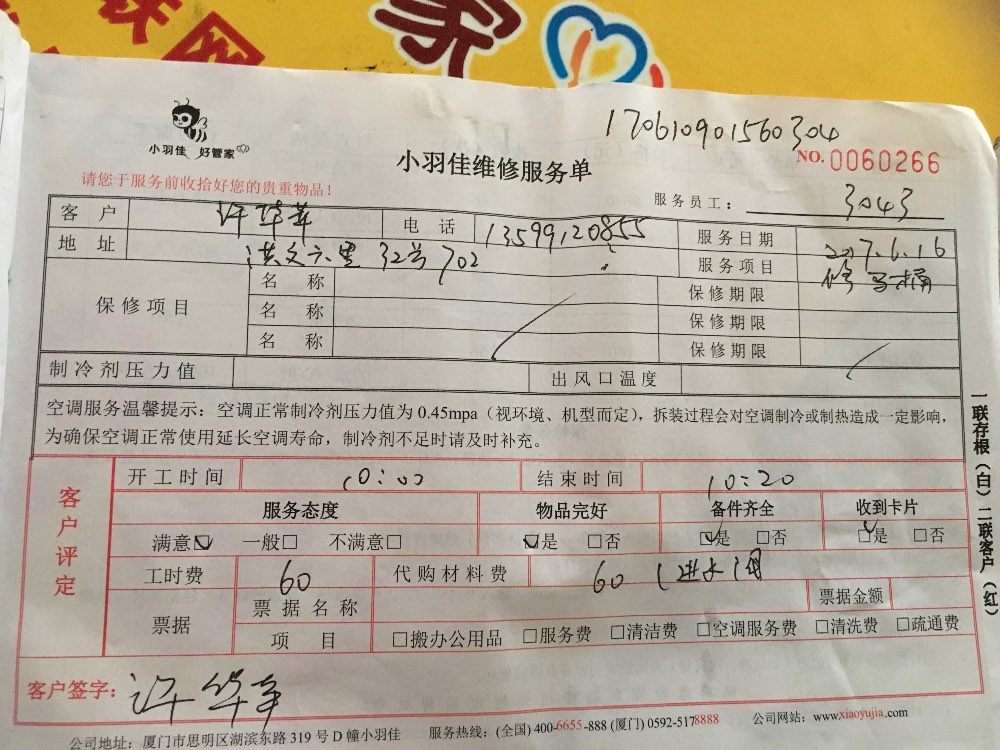 家
170610901560304
小羽佳 好管家
小羽佳维修服务单
NO. 0060266
请您于服务前收拾好您的贵重物品！
服务员工： 3043
客 户 许华萍 电 话 13599120855 服务日期 2017.6.16
地 址 洪文六里 32号702 服务项目 修马桶
保修项目 名 称 保修期限
名 称 保修期限
名 称 保修期限
制冷剂压力值 出风口温度
空调服务温馨提示：空调正常制冷剂压力值为 0.45mpa（视环境、机型而定），拆装过程会对空调制冷或制热造成一定影响，
为确保空调正常使用延长空调寿命，制冷剂不足时请及时补充。
客户评定
开工时间 10:00 结束时间 10:20
服务态度 物品完好 备件齐全 收到卡片
满意☑ 一般□ 不满意□ ☑是 □否 ☑是 □否 ☑是 □否
工时费 60 代购材料费 60（进水阀
票据 票据名称 票据金额
项 目 □搬办公用品 □服务费 □清洁费 □空调服务费 □清洗费 □疏通费
客户签字： 许华萍
公司地址：厦门市思明区湖滨东路 319 号 D 幢小羽佳 服务热线：(全国) 400-6655-888 (厦门) 0592-5178888 公司网站：www.xiaoyujia.com
一联存根（白）二联客户（红）